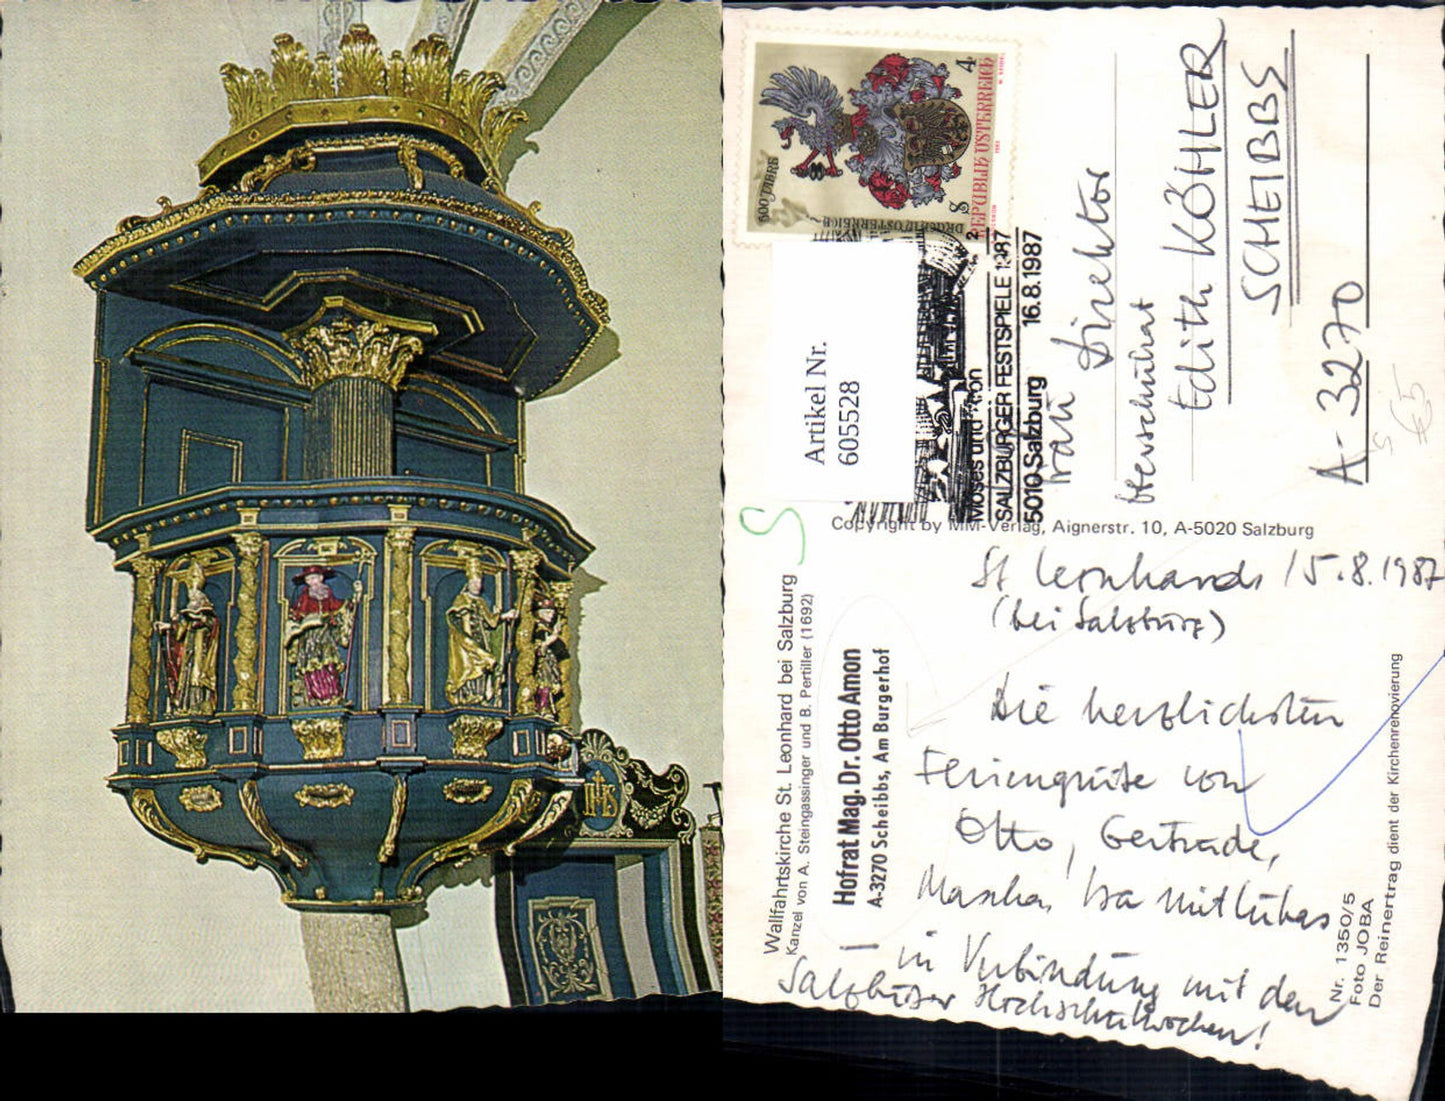 IHS
600 JAHRE
DRUCK IN ÖSTERREICH
REPUBLIK ÖSTERREICH
S 4
Artikel Nr.
605528
Moses und
SALZBURGER FESTSPIELE 1987
5010 Salzburg 16.8.1987
Frau
Direktor
Oberschulrat
Edith KÖHLER
SCHEIBBS
A-3270
Copyright by MM-Verlag, Aignerstr. 10, A-5020 Salzburg
Wallfahrtskirche St. Leonhard bei Salzburg
Kanzel von A. Steingassinger und B. Pertiller (1692)
Hofrat Mag. Dr. Otto Amon
A-3270 Scheibbs, Am Burgerhof
St Leonhard, 15.8.1987
(bei Salzburg)
Die herzlichsten
Feriengrüße von
Otto, Gertrude,
in Verbindung mit den
Salzburger Hochschulwochen!
Nr. 1350/5
Foto JOBA
Der Reinertrag dient der Kirchenrenovierung
€5